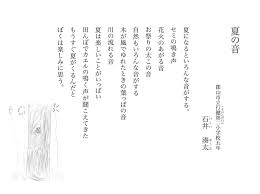 夏の音
郡山市立行健第二小学校五年
石井 湧太
夏になるといろんな音がする。
セミの鳴き声
花火のあがる音
お祭りの太この音
自然もいろんな音がする
木が風でゆれたときの葉っぱの音
川の流れる音
夏は楽しいことがいっぱい
田んぼでカエルの鳴く声が聞こえてきた
もうすぐ夏がくるんだと
ぼくは楽しみに思う。